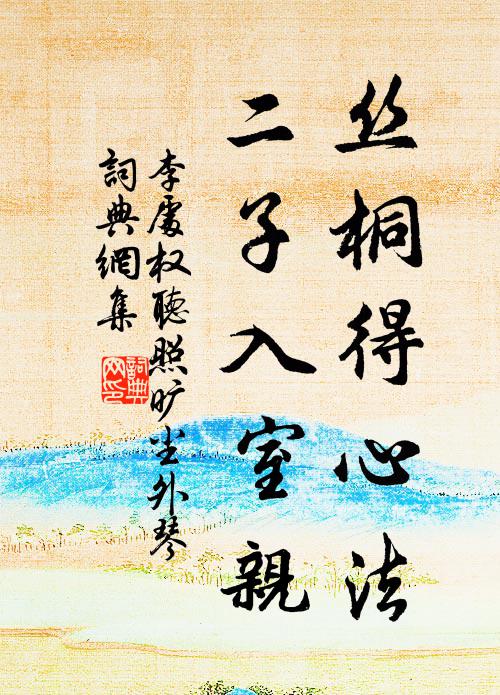 丝桐得心法
二子入室親
李處权聽照旷尘外琴
詞典網集
詞典
网印